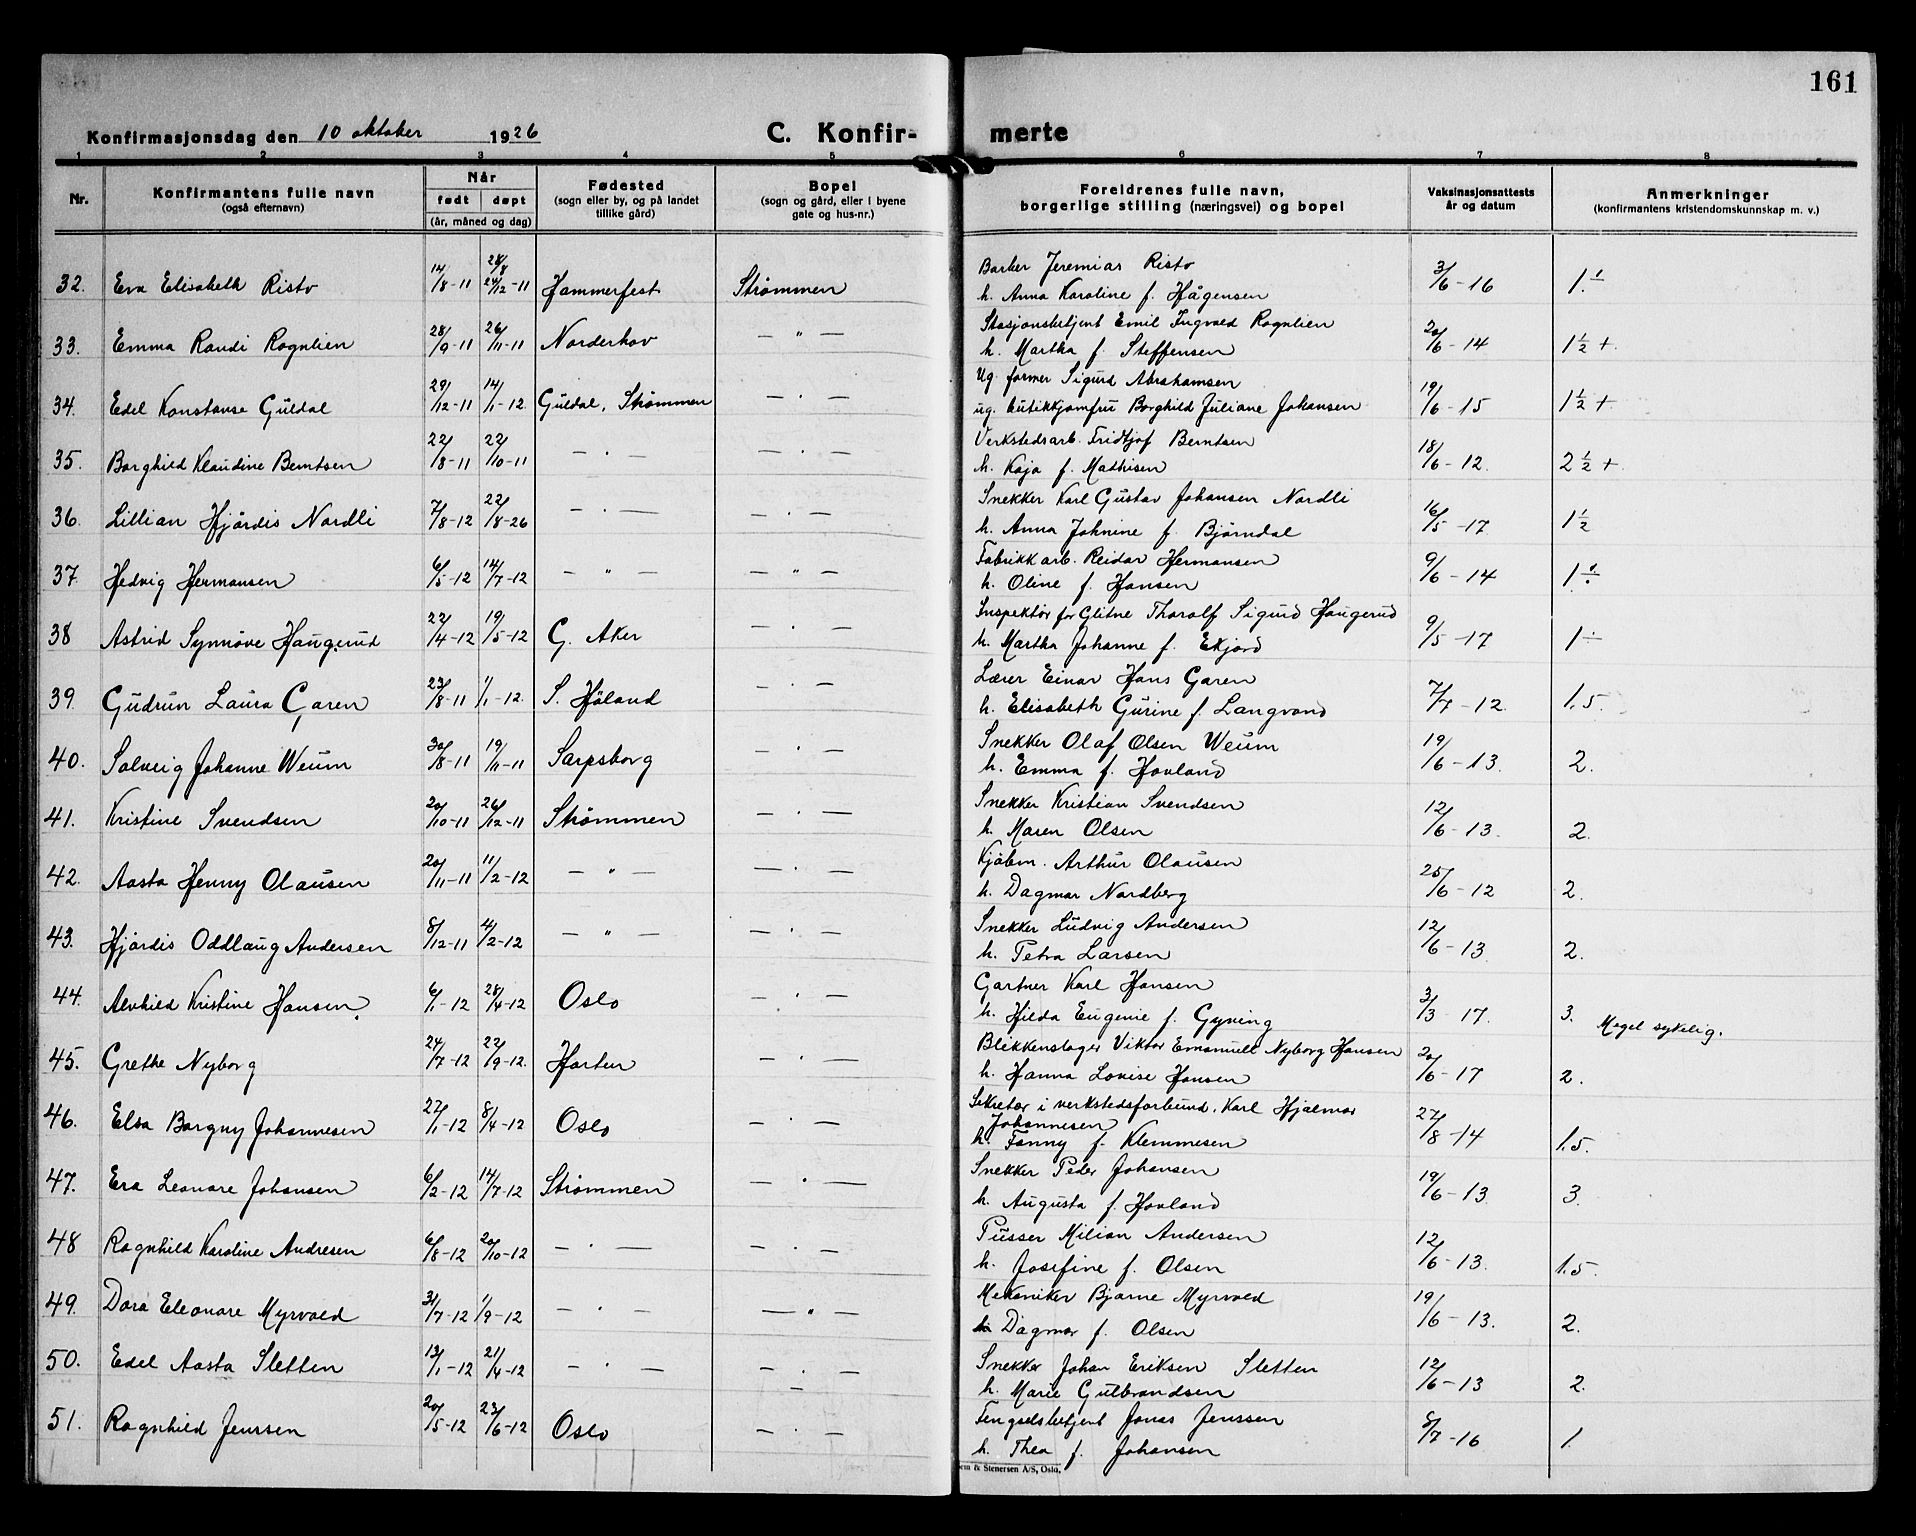 161
Konfirmasjonsdag den 10 oktober 1926 C. Konfir- merte
1 2 3 4 5 6 7 8
Nr. Konfirmantens fulle navn (også efternavn) Når født døpt (år, måned og dag) Fødested (sogn eller by, og på landet tillike gård) Bopel (sogn og gård, eller i byene gate og hus-nr.) Foreldrenes fulle navn, borgerlige stilling (næringsvei) og bopel Vaksinasjonsattests år og datum Anmerkninger (konfirmantens kristendomskunnskap m. v.)
32. Eva Elisabeth Risto 14/8-11 28/8 24/12-11 Hammerfest Strømmen Barber Jeremias Risto 3/6-16 1.÷
h. Anna Karoline f. Hågensen
33. Emma Randi Rognlien 28/9-11 26/11-11 Norderhov — " — Stasjonsbetjent Emil Ingvald Rognlien 20/6-14 1½ +.
h. Martha f. Steffensen
34. Edel Konstanse Guldal 29/12-11 14/1-12 Guldal, Strømmen — . — Ug. former Sigurd Abrahamsen 19/6-15 1½ +
ug. butikkjomfru Borghild Juliane Johansen
35. Borghild Klaudine Berntsen 22/8-11 22/10-11 — . — — . — Verkstedsarb. Fridtjof Berntsen 18/6-12. 2½ +
h. Kaja f. Mathisen
36. Lillian Hjördis Nordli 7/8-12 22/8-26 — . — — . — Snekker Karl Gustav Johansen Nordli 16/5-17. 1½
h. Anna Johnine f. Björndal
37. Hedvig Hermansen 6/5-12 14/7-12 — " — — " — Fabrikkarb. Reidar Hermansen 9/6-14 1÷
h. Oline f. Hansen
38 Astrid Synnöve Haugerud 22/4-12 19/5-12 G. Aker — . — Inspektör for Glitne Thoralf Sigurd Haugerud 9/5-17 1÷
h. Martha Johanne f. Ekjord
39. Gudrun Laura Garen 23/8-11 1/1-12. S. Höland — . — Lærer Einar Hans Garen 7/7-12. 1.5.
h. Elisabeth Gurine f. Langvand
40. Solveig Johanne Weum 30/8-11 19/11-11 Sarpsborg — . — Snekker Olaf Olsen Weum 19/6-13. 2.
h. Emma f. Hovland
41. Kristine Svendsen 20/10-11 26/12-11 Strømmen — . — Snekker Kristian Svendsen 12/6-13. 2.
h. Maren Olsen
42. Aasta Henny Olausen 20/11-11 11/2-12 — " — — . — Kjöbm. Arthur Olausen 25/6-12 2.
h. Dagmar Nordberg
43. Hjördis Oddlaug Andersen 8/12-11 4/2-12 — " — — . — Snekker Ludvig Andersen 12/6-13 2.
h. Petra Larsen
44. Alvhild Kristine Hansen. 6/1-12 28/4-12 Oslo — . — Gartner Karl Hansen 3/3-17. 3. Meget sykelig.
h. Hilda Eugenie f. Gyving
45. Grethe Nyborg 24/7-12 22/9-12. Horten — . — Blikkenslager Viktor Emanuell Nyborg Hansen 20/6-17 2.
h. Hanna Lovise Hansen
46. Elsa Borgny Johannesen 27/1-12 8/4-12 Oslo — . — Sekretær i verkstedsforbund. Karl Hjalmar 27/8-14 1.5.
Johannesen
h. Fanny f. Klemmesen
47. Eva Leonore Johansen 6/2-12 14/7-12 Strømmen — . — Snekker Peder Johansen 19/6-13 3.
h. Augusta f. Hovland
48 Ragnhild Karoline Andresen 6/8-12 20/10-12 — . — — . — Pusser Milian Andersen 12/6-13. 1.5.
h. Josefine f. Olsen
49. Dora Eleonore Myrvold 31/7-12 1/9-12 — . — — " — Mekaniker Bjarne Myrvold 19/6-13. 2.
h Dagmar f. Olsen
50. Edel Aasta Sletten 13/1-12 21/4-12 — . — — . — Snekker Johan Eriksen Sletten 12/6-13 2.
h. Marie Gulbrandsen
51. Ragnhild Jenssen 20/5-12 23/6-12 Oslo — . — Fengselsbetjent Jonas Jenssen 8/7-16 1.
h. Thea f. Johansen
& Stenersen A/S, Oslo.